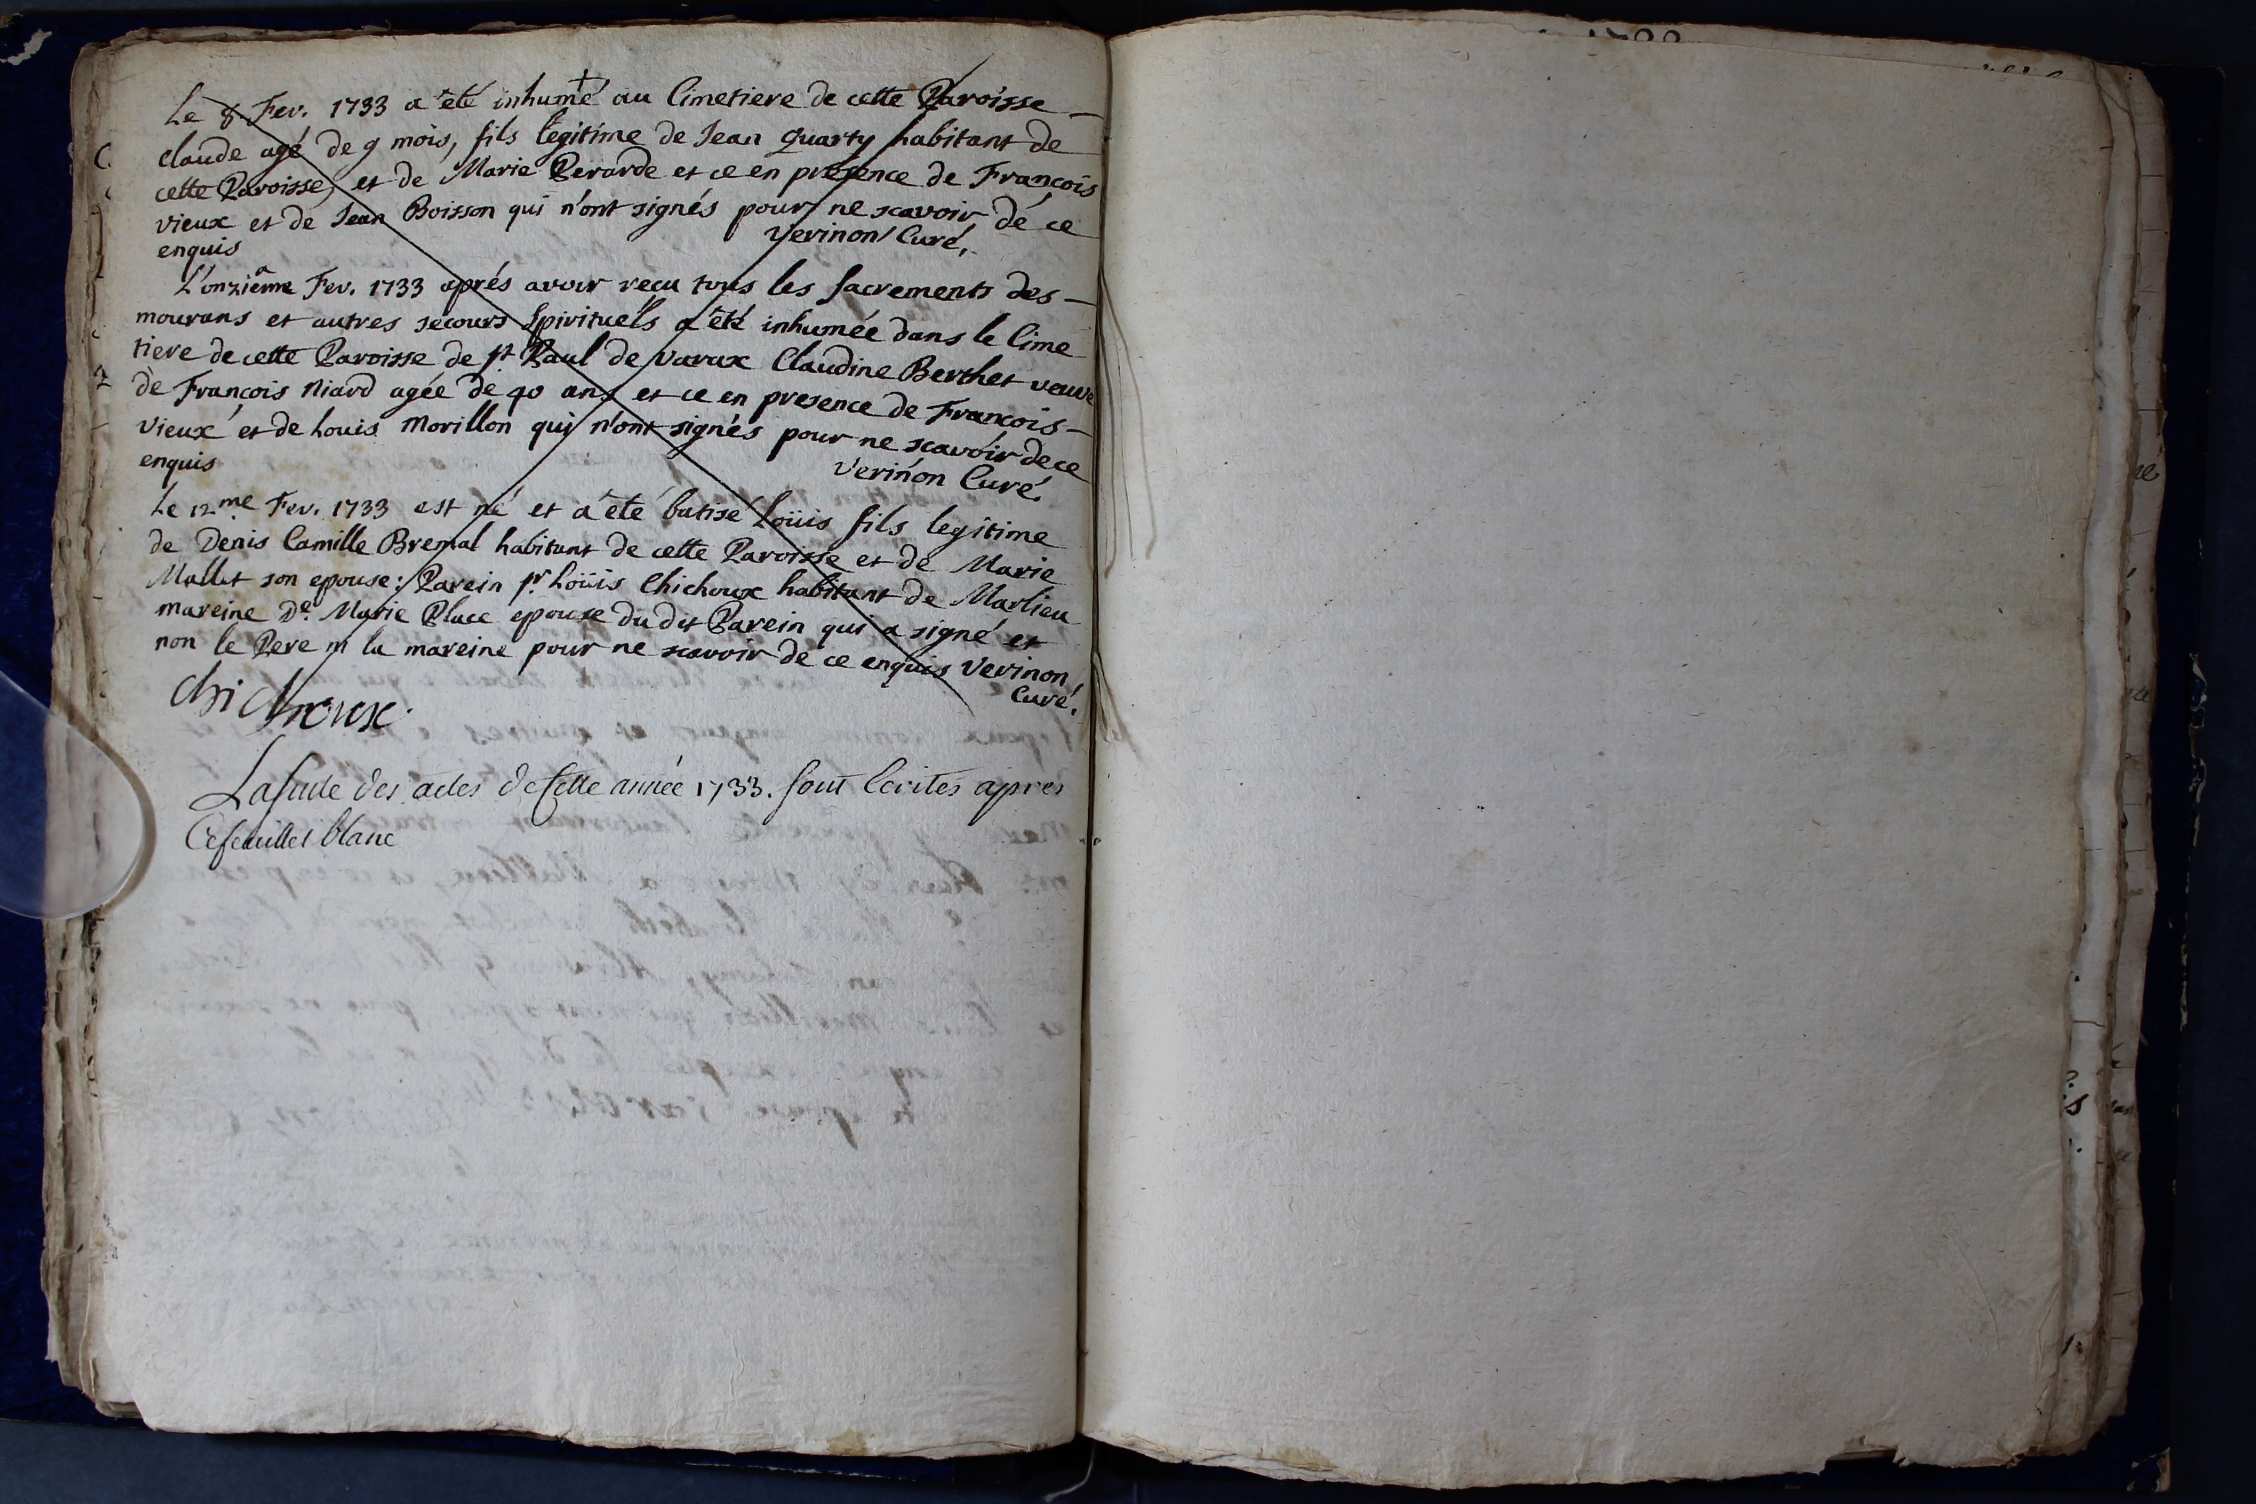 Le 8. Fev. 1733 a été inhumé au Cimetiere de cette Paroisse
Claude agé de 9 mois, fils legitime de Jean Quarty habitant de
cette Paroisse, et de Marie Perarde et ce en présence de François
vieux et de Jean Boisson qui n'ont signés pour ne scavoir dé ce
enquis Verinon Curé.
L'onziême Fev. 1733 aprés avoir recu tous les Sacrements des
mourans et autres secours Spirituels a été inhumée dans le Cime
tiere de cette Paroisse de St. Paul de Varax Claudine Berthet veuve
de François Niard agée de 40 ans et ce en presence de François
Vieux et de Louis Morillon qui n'ont signés pour ne scavoir de ce
enquis Verinon Curé.
Le 12me Fev. 1733 est né et a été batisé Loüis fils legitime
de Denis Camille Bremal habitant de cette Paroisse et de Marie
Mallet son epouse: Parein Sr. Loüis Chichoux habitant de Marlieu
mareine De. Marie Place epouse du dit Parein qui a signé et
non le Pere ni la mareine pour ne scavoir de ce enquis Verinon
Curé.
Chichoux.
La suite des actes de Cette année 1733. sont Ecrites apres
Ce feuillet blanc